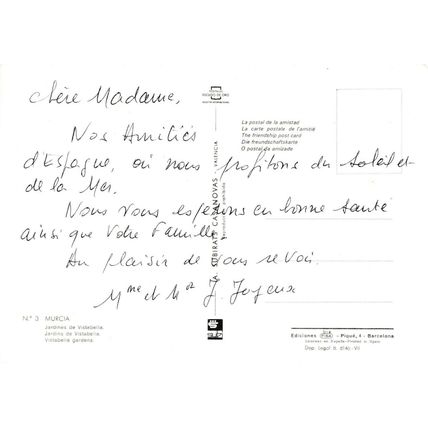 Chère Madame,
Nos Amitiés
d'Espagne, où nous profitons du Soleil et
de la Mer.
Nous vous espérons en bonne santé
ainsi que Votre Famille.
Au plaisir de vous revoir.
Mme et Mr J. Joyeux
ESCUDO DE ORO
La postal de la amistad
La carte postale de l'amitié
The friendship post card
Die freundschaftskarte
O postal da amizade
A. SUBIRATS CASANOVAS - VALENCIA
N.º 3 MURCIA
Jardines de Vistabella.
Jardins de Vistabella.
Vistabella gardens.
Ediciones FISA - Piqué, 4 - Barcelona
Dep. legal B.